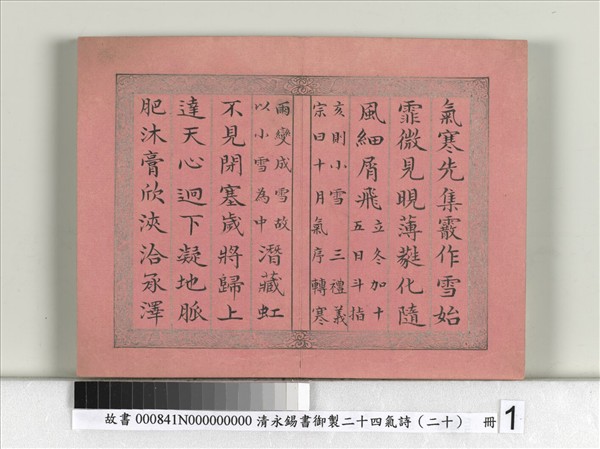 氣寒先集霰作雪始
霏微見晛薄蕤化隨
風細屑飛
立冬加十
五日斗指
亥則小雪 三禮義
宗曰十月氣序轉寒
雨變成雪故
以小雪為中
潛藏虹
不見閉塞歲將歸上
達天心迥下凝地脈
肥沐膏欣浹洽承澤
故書 000841N000000000 清永錫書御製二十四氣詩（二十） 冊 1